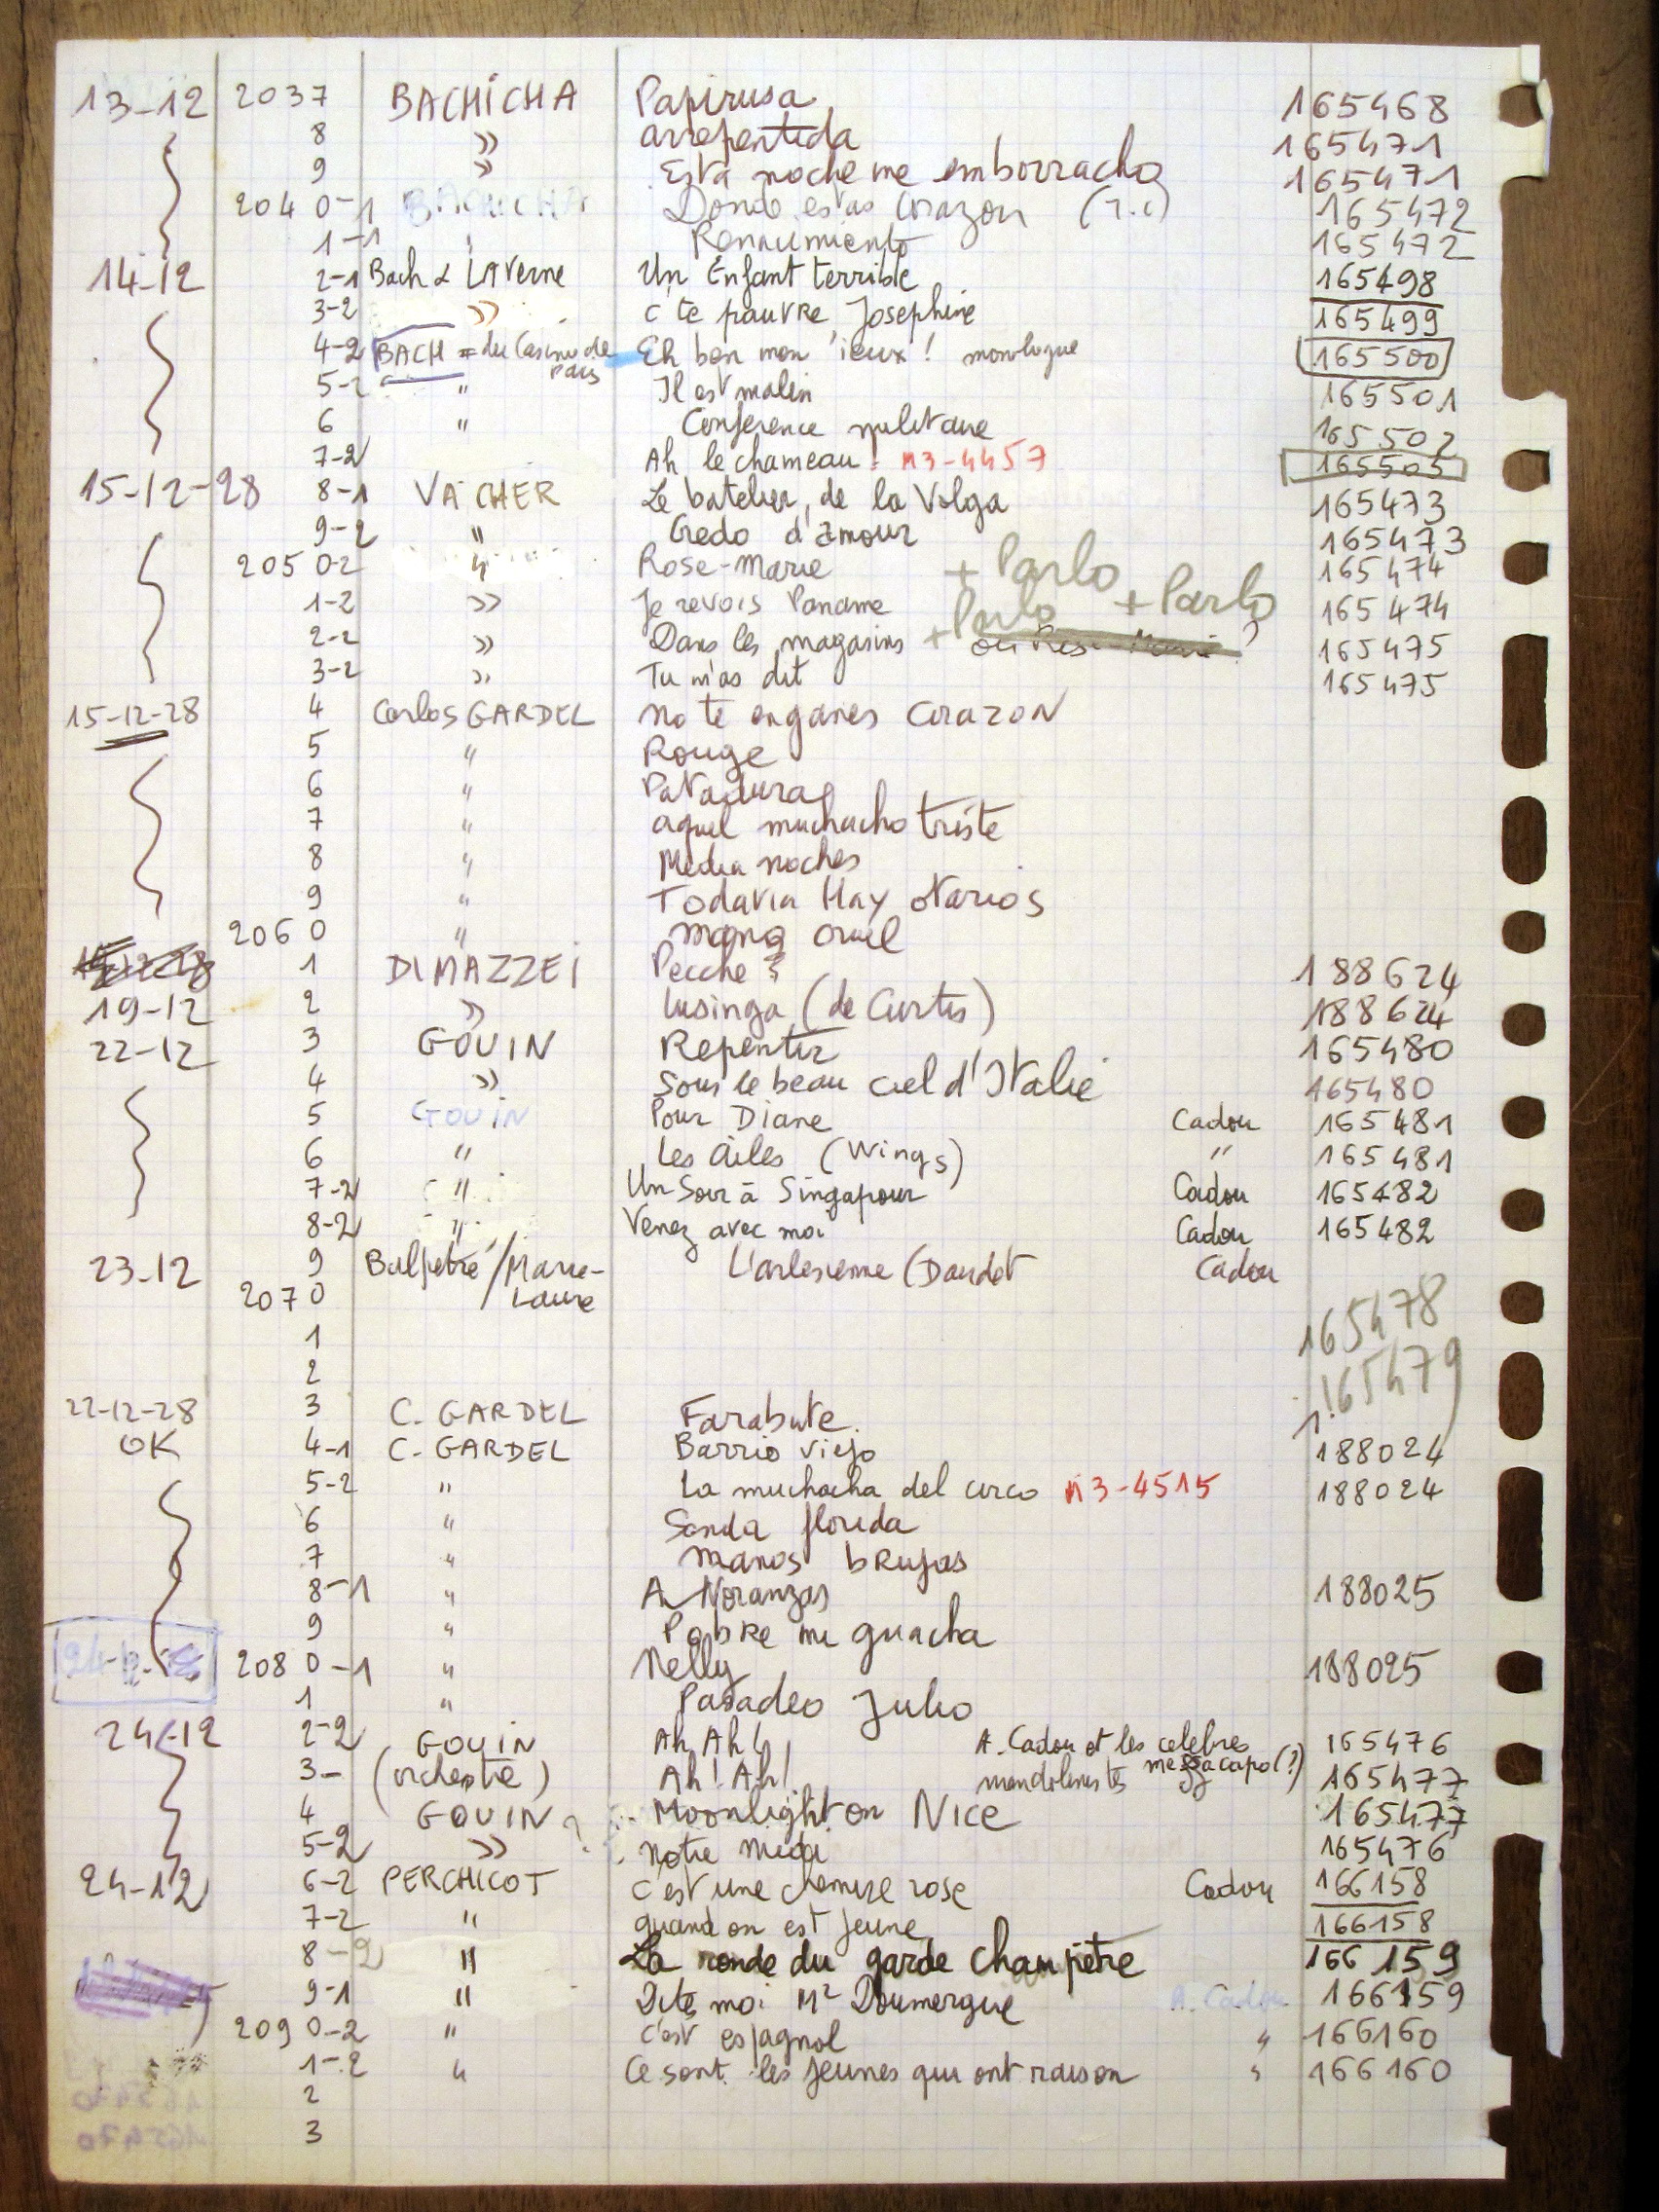 13-12 2037 BACHICHA Papirusa 165468
8 » arrepentida 165471
9 » Esta noche me emborracho 165471
2040-1 BACHICHA Donde estas Corazon 165472
1-1 Renacimiento 165472
14-12 2-1 Bach & LAVerne Un Enfant terrible 165498
3-2 » C'te pauvre Josephine 165499
4-2 BACH = du Casino de Paris Eh ben mon 'ieux! monologue 165500
5-2 " Il est malin 165501
6 " Conference militaire 165502
7-2 Ah le chameau! M3-4457 165503
15-12-28 8-1 VACHER Le batelier de la Volga 165473
9-2 " Credo d'amour 165473
2050-2 " Rose-Marie + Parlo 165474
1-2 » Je revois Paname + Parlo 165474
2-2 » Dans les magasins + Parlo ou Rose-Marie? 165475
3-2 » Tu m'as dit 165475
15-12-28 4 Carlos GARDEL No te enganes Corazon
5 " Rouge
6 " Patadura
7 " aquel muchacho triste
8 " Media noches
9 " Todavia Hay otarios
2060 " mano cruel
1 DI MAZZEI Pecche? 188624
19-12 2 » Lusinga (de Curtis) 188624
22-12 3 GOUIN Repentir 165480
4 » Sous le beau ciel d'Italie 165480
5 GOUIN Pour Diane Cadou 165481
6 " Les Ailes (Wings) " 165481
7-2 " Un Soir à Singapour Cadou 165482
8-2 " Venez avec moi Cadou 165482
23-12 9 Balpetré/Marie-Laure L'arlesienne (Daudet Cadou
2070 165478
1 165479
2
22-12-28 3 C. GARDEL Farabute
OK 4-1 C. GARDEL Barrio viejo 188024
5-2 " La muchacha del circo M3-4515 188024
6 " Senda florida
7 " manos brujas
8-1 " Añoranzas 188025
9 " Pobre mi guacha
2080-1 " Nelly 188025
1 " Paseadeo Julio
24-12 2-2 GOUIN Ah Ah! A. Cadou et les celebres 165476
3- (orchestre) Ah! Ah! mandolinistes mezzacapo(?) 165477
4 GOUIN Moonlight on Nice 165477
5-2 » ? Notre Midi 165476
24-12 6-2 PERCHICOT C'est une chemise rose Cadou 166158
7-2 " quand on est jeune 166158
8-2 " La ronde du garde champêtre 166159
9-1 " Dites moi Mr Doumergue A. Cadou 166159
2090-2 " C'est espagnol " 166160
1-2 " Ce sont les jeunes qui ont raison " 166160
2
3